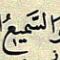 وَالسَّمِيعُ